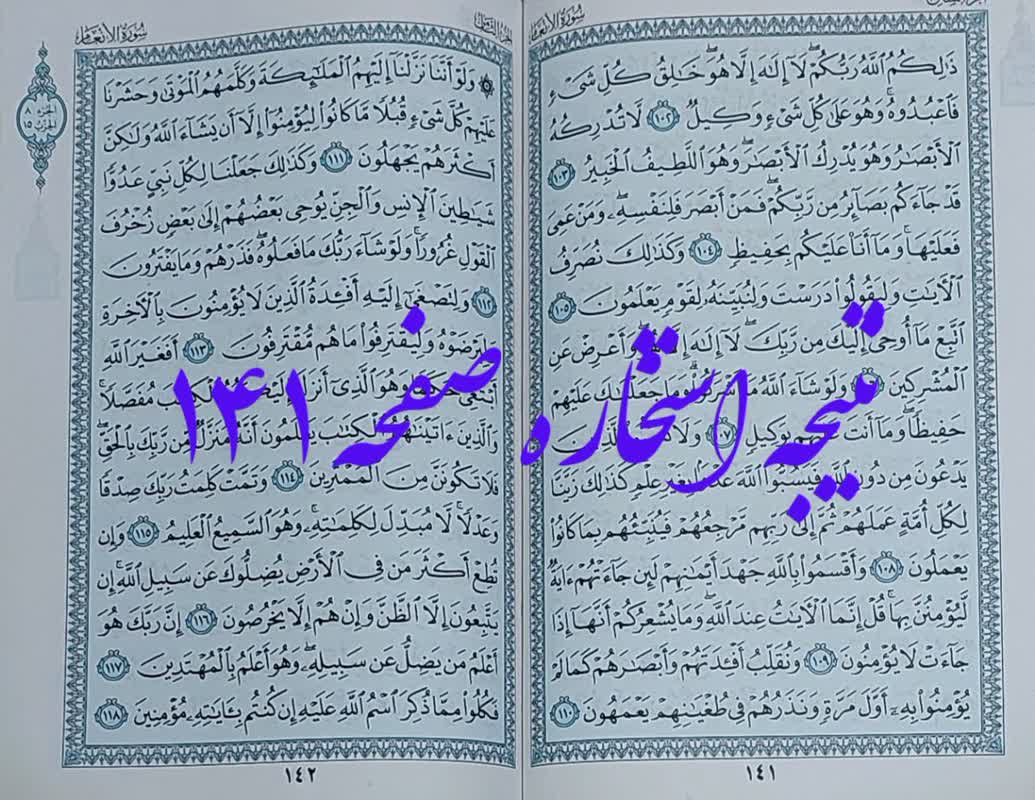 سُورَةُ الأَنعَامِ
ذَٰلِكُمُ ٱللَّهُ رَبُّكُمْ ۖ لَآ إِلَٰهَ إِلَّا هُوَ ۖ خَٰلِقُ كُلِّ شَىْءٍ
فَٱعْبُدُوهُ ۚ وَهُوَ عَلَىٰ كُلِّ شَىْءٍ وَكِيلٌ ١٠٢ لَّا تُدْرِكُهُ
ٱلْأَبْصَٰرُ وَهُوَ يُدْرِكُ ٱلْأَبْصَٰرَ ۖ وَهُوَ ٱللَّطِيفُ ٱلْخَبِيرُ ١٠٣
قَدْ جَآءَكُم بَصَآئِرُ مِن رَّبِّكُمْ ۖ فَمَنْ أَبْصَرَ فَلِنَفْسِهِۦ ۖ وَمَنْ عَمِىَ
فَعَلَيْهَا ۚ وَمَآ أَنَا۠ عَلَيْكُم بِحَفِيظٍ ١٠٤ وَكَذَٰلِكَ نُصَرِّفُ
ٱلْءَايَٰتِ وَلِيَقُولُوا۟ دَرَسْتَ وَلِنُبَيِّنَهُۥ لِقَوْمٍ يَعْلَمُونَ ١٠٥
ٱتَّبِعْ مَآ أُوحِىَ إِلَيْكَ مِن رَّبِّكَ ۖ لَآ إِلَٰهَ إِلَّا هُوَ ۖ وَأَعْرِضْ عَنِ
ٱلْمُشْرِكِينَ وَلَوْ شَآءَ ٱللَّهُ مَآ أَشْرَكُوا۟ ۗ وَمَا جَعَلْنَٰكَ عَلَيْهِمْ
حَفِيظًا ۖ وَمَآ أَنتَ عَلَيْهِم بِوَكِيلٍ ١٠٧ وَلَا تَسُبُّوا۟ ٱلَّذِينَ
يَدْعُونَ مِن دُونِ ٱللَّهِ فَيَسُبُّوا۟ ٱللَّهَ عَدْوًۢا بِغَيْرِ عِلْمٍ ۗ كَذَٰلِكَ زَيَّنَّا
لِكُلِّ أُمَّةٍ عَمَلَهُمْ ثُمَّ إِلَىٰ رَبِّهِم مَّرْجِعُهُمْ فَيُنَبِّئُهُم بِمَا كَانُوا۟
يَعْمَلُونَ ١٠٨ وَأَقْسَمُوا۟ بِٱللَّهِ جَهْدَ أَيْمَٰنِهِمْ لَئِن جَآءَتْهُمْ ءَايَةٌ
لَّيُؤْمِنُنَّ بِهَا ۚ قُلْ إِنَّمَا ٱلْءَايَٰتُ عِندَ ٱللَّهِ ۖ وَمَا يُشْعِرُكُمْ أَنَّهَآ إِذَا
جَآءَتْ لَا يُؤْمِنُونَ ١٠٩ وَنُقَلِّبُ أَفْـِٔدَتَهُمْ وَأَبْصَٰرَهُمْ كَمَا لَمْ
يُؤْمِنُوا۟ بِهِۦٓ أَوَّلَ مَرَّةٍ وَنَذَرُهُمْ فِى طُغْيَٰنِهِمْ يَعْمَهُونَ ١١٠
١٤١
سُورَةُ الأَنعَامِ
الجزء ٨
الحزب ١٥
۞ وَلَوْ أَنَّنَا نَزَّلْنَآ إِلَيْهِمُ ٱلْمَلَٰٓئِكَةَ وَكَلَّمَهُمُ ٱلْمَوْتَىٰ وَحَشَرْنَا
عَلَيْهِمْ كُلَّ شَىْءٍ قُبُلًا مَّا كَانُوا۟ لِيُؤْمِنُوٓا۟ إِلَّآ أَن يَشَآءَ ٱللَّهُ وَلَٰكِنَّ
أَكْثَرَهُمْ يَجْهَلُونَ ١١١ وَكَذَٰلِكَ جَعَلْنَا لِكُلِّ نَبِىٍّ عَدُوًّا
شَيَٰطِينَ ٱلْإِنسِ وَٱلْجِنِّ يُوحِى بَعْضُهُمْ إِلَىٰ بَعْضٍ زُخْرُفَ
ٱلْقَوْلِ غُرُورًا ۚ وَلَوْ شَآءَ رَبُّكَ مَا فَعَلُوهُ ۖ فَذَرْهُمْ وَمَا يَفْتَرُونَ
١١٢ وَلِتَصْغَىٰٓ إِلَيْهِ أَفْـِٔدَةُ ٱلَّذِينَ لَا يُؤْمِنُونَ بِٱلْءَاخِرَةِ
وَلِيَرْضَوْهُ وَلِيَقْتَرِفُوا۟ مَا هُم مُّقْتَرِفُونَ ١١٣ أَفَغَيْرَ ٱللَّهِ
أَبْتَغِى حَكَمًا وَهُوَ ٱلَّذِىٓ أَنزَلَ إِلَيْكُمُ ٱلْكِتَٰبَ مُفَصَّلًا ۚ
وَٱلَّذِينَ ءَاتَيْنَٰهُمُ ٱلْكِتَٰبَ يَعْلَمُونَ أَنَّهُۥ مُنَزَّلٌ مِّن رَّبِّكَ بِٱلْحَقِّ ۖ
فَلَا تَكُونَنَّ مِنَ ٱلْمُمْتَرِينَ ١١٤ وَتَمَّتْ كَلِمَتُ رَبِّكَ صِدْقًا
وَعَدْلًا ۚ لَّا مُبَدِّلَ لِكَلِمَٰتِهِۦ ۚ وَهُوَ ٱلسَّمِيعُ ٱلْعَلِيمُ ١١٥ وَإِن
تُطِعْ أَكْثَرَ مَن فِى ٱلْأَرْضِ يُضِلُّوكَ عَن سَبِيلِ ٱللَّهِ ۚ إِن
يَتَّبِعُونَ إِلَّا ٱلظَّنَّ وَإِنْ هُمْ إِلَّا يَخْرُصُونَ ١١٦ إِنَّ رَبَّكَ هُوَ
أَعْلَمُ مَن يَضِلُّ عَن سَبِيلِهِۦ ۖ وَهُوَ أَعْلَمُ بِٱلْمُهْتَدِينَ ١١٧
فَكُلُوا۟ مِمَّا ذُكِرَ ٱسْمُ ٱللَّهِ عَلَيْهِ إِن كُنتُم بِـَٔايَٰتِهِۦ مُؤْمِنِينَ ١١٨
١٤٢
نتیجه استخاره صفحه ۱۴۱